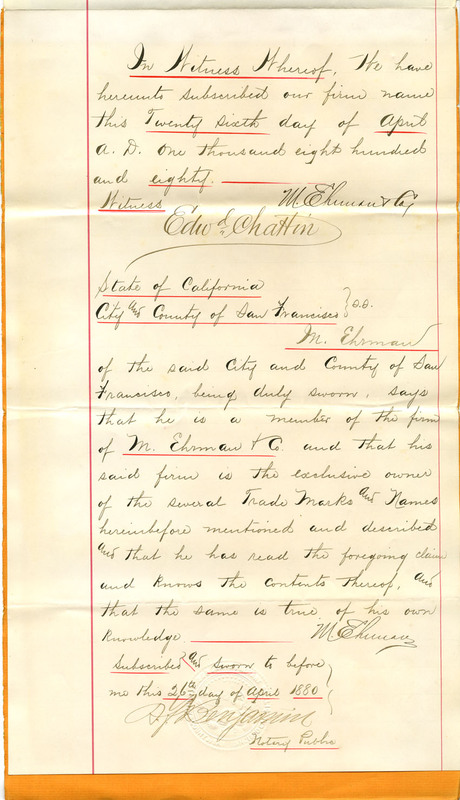 In Witness Whereof, We have
hereunto subscribed our firm name
this Twenty sixth day of April
A. D. One thousand eight hundred
and eighty.
Witness M. Ehrman & Co
Edwd. Chattin
State of California
City and County of San Francisco } s.s.
M. Ehrman
of the said City and County of San
Francisco, being duly sworn, says
that he is a member of the firm
of M. Ehrman & Co. and that his
said firm is the exclusive owner
of the several Trade Marks and Names
hereinbefore mentioned and described
and that he has read the foregoing claim
and knows the contents thereof, and
that the same is true of his own
knowledge. M. Ehrman
Subscribed and sworn to before
me this 26th day of April 1880
Benjamin
Notary Public